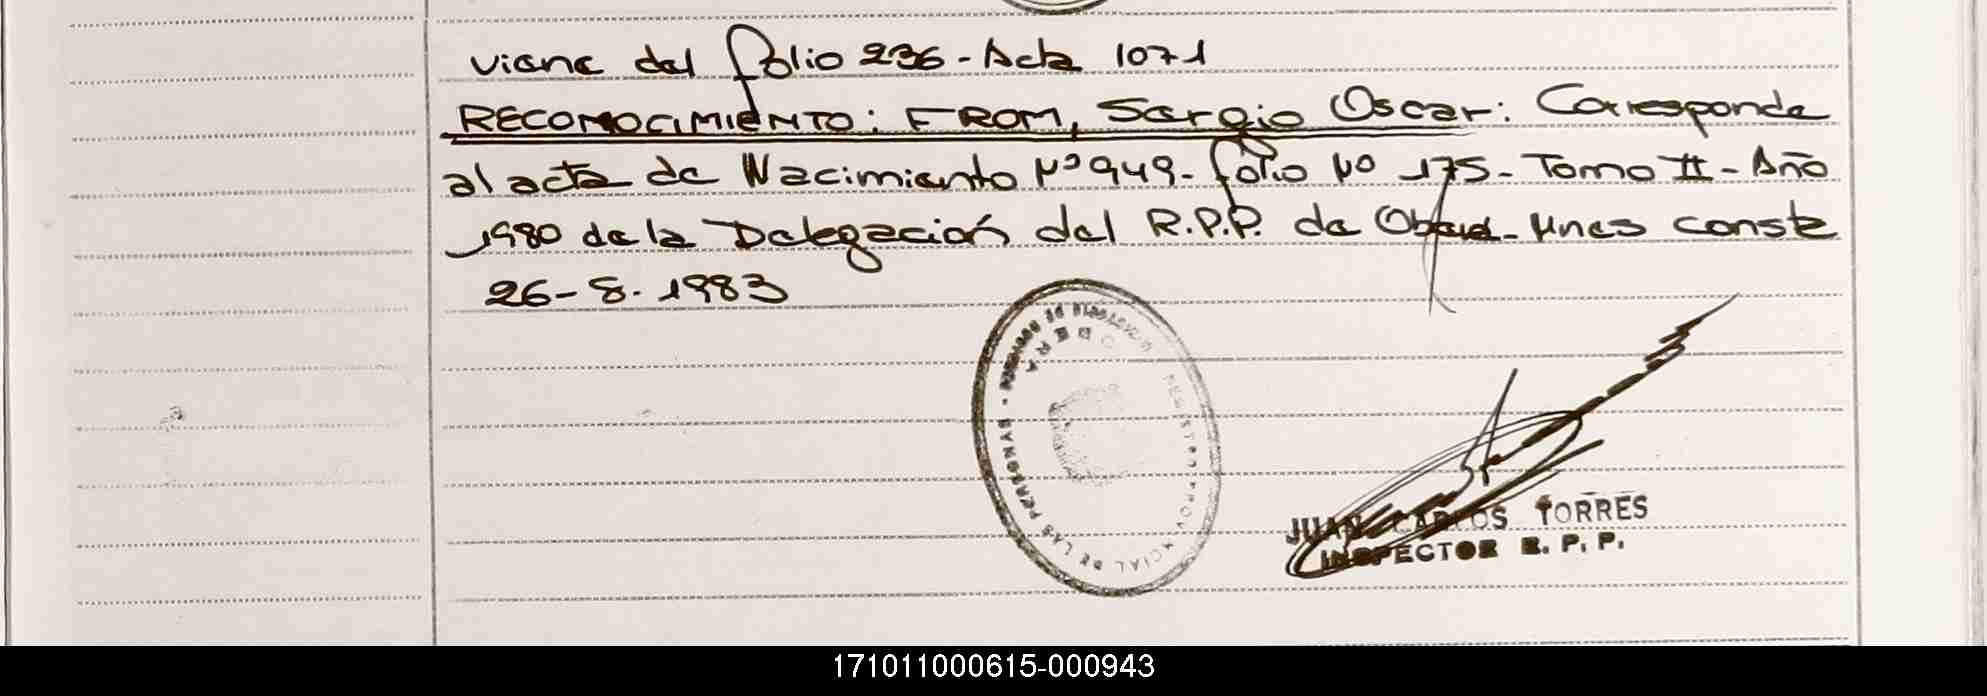 Viene del folio 236 - Acta 1071
RECONOCIMIENTO: FROM, Sergio Oscar: Corresponde
al acta de Nacimiento Nº 949 - folio Nº 175 - Tomo II - Año
1980 de la Delegación del R.P.P. de Oberá - Mnes conste
26-8-1983
REGISTRO PROVINCIAL DE LAS PERSONAS -
JUAN CARLOS TORRES
INSPECTOR R. P. P.
171011000615-000943